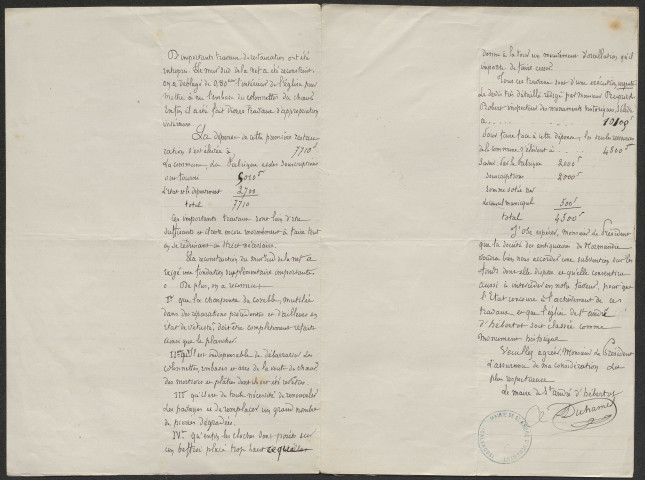 D'importants travaux de restauration ont été
entrepris. Le mur sud de la nef a été reconstruit
on a déblayé de 0,80 l'intérieur de l'église pour
mettre à nu l'embase des colonnettes du chœur
Enfin, il a été fait divers travaux d'appropriation
intérieure.
La dépense de cette première restau-
ration s'est élevée à 7710f
La commune, la fabrique et des souscriptions
ont fourni 5010f
L'état et le département 2700
total 7710
Ces importants travaux sont loin d'être
suffisants et il reste encore énormément à faire tout
en se restreignant au strict nécessaire.
La reconstruction du mur sud de la nef a
exigé une fondation supplémentaire importante.
De plus, on a reconnu :
I° que la charpente du comble, mutilée
dans des réparations précédentes et d'ailleurs en
état de vétusté, doit être complètement refaite
ainsi que le plancher.
II° qu'il est indispensable de débarrasser les
colonnettes, embases et arcs de la voûte du chœur
des mortiers et plâtres dont ils ont été revêtus.
III° qu'il est de toute nécessité de renouveler
les pavages et de remplacer un grand nombre
de pierres dégradées.
IV° qu'enfin les cloches sont posées sur
un beffroi placé trop haut ce qui
donne à la tour un mouvement d'oscillation qu'il
importe de faire cesser.
Tous ces travaux sont d'une exécution urgente
Le devis très détaillé rédigé par monsieur
Robert inspecteur des monuments historiques, s'élève
à 10109f
Pour faire face à cette dépense, les seules ressources
de la commune s'élèvent à 4500f
Savoir : par la fabrique 2000f
souscriptions 2000f
somme votée par
le conseil municipal 500f
total 4500f
J'ose espérer, monsieur le Président
que la société des antiquaires de Normandie
voudra bien nous accorder une subvention sur les
fonds dont elle dispose et qu'elle consentira
aussi à intercéder en notre faveur, pour que
l'Etat concoure à l'achèvement de ces
travaux et que l'église de St André
d'hébertot soit classée comme
monument historique
Veuillez agréer, Monsieur le Président
l'assurance de ma considération la
plus respectueuse
Le maire de St André d'hébertot
Duhamel